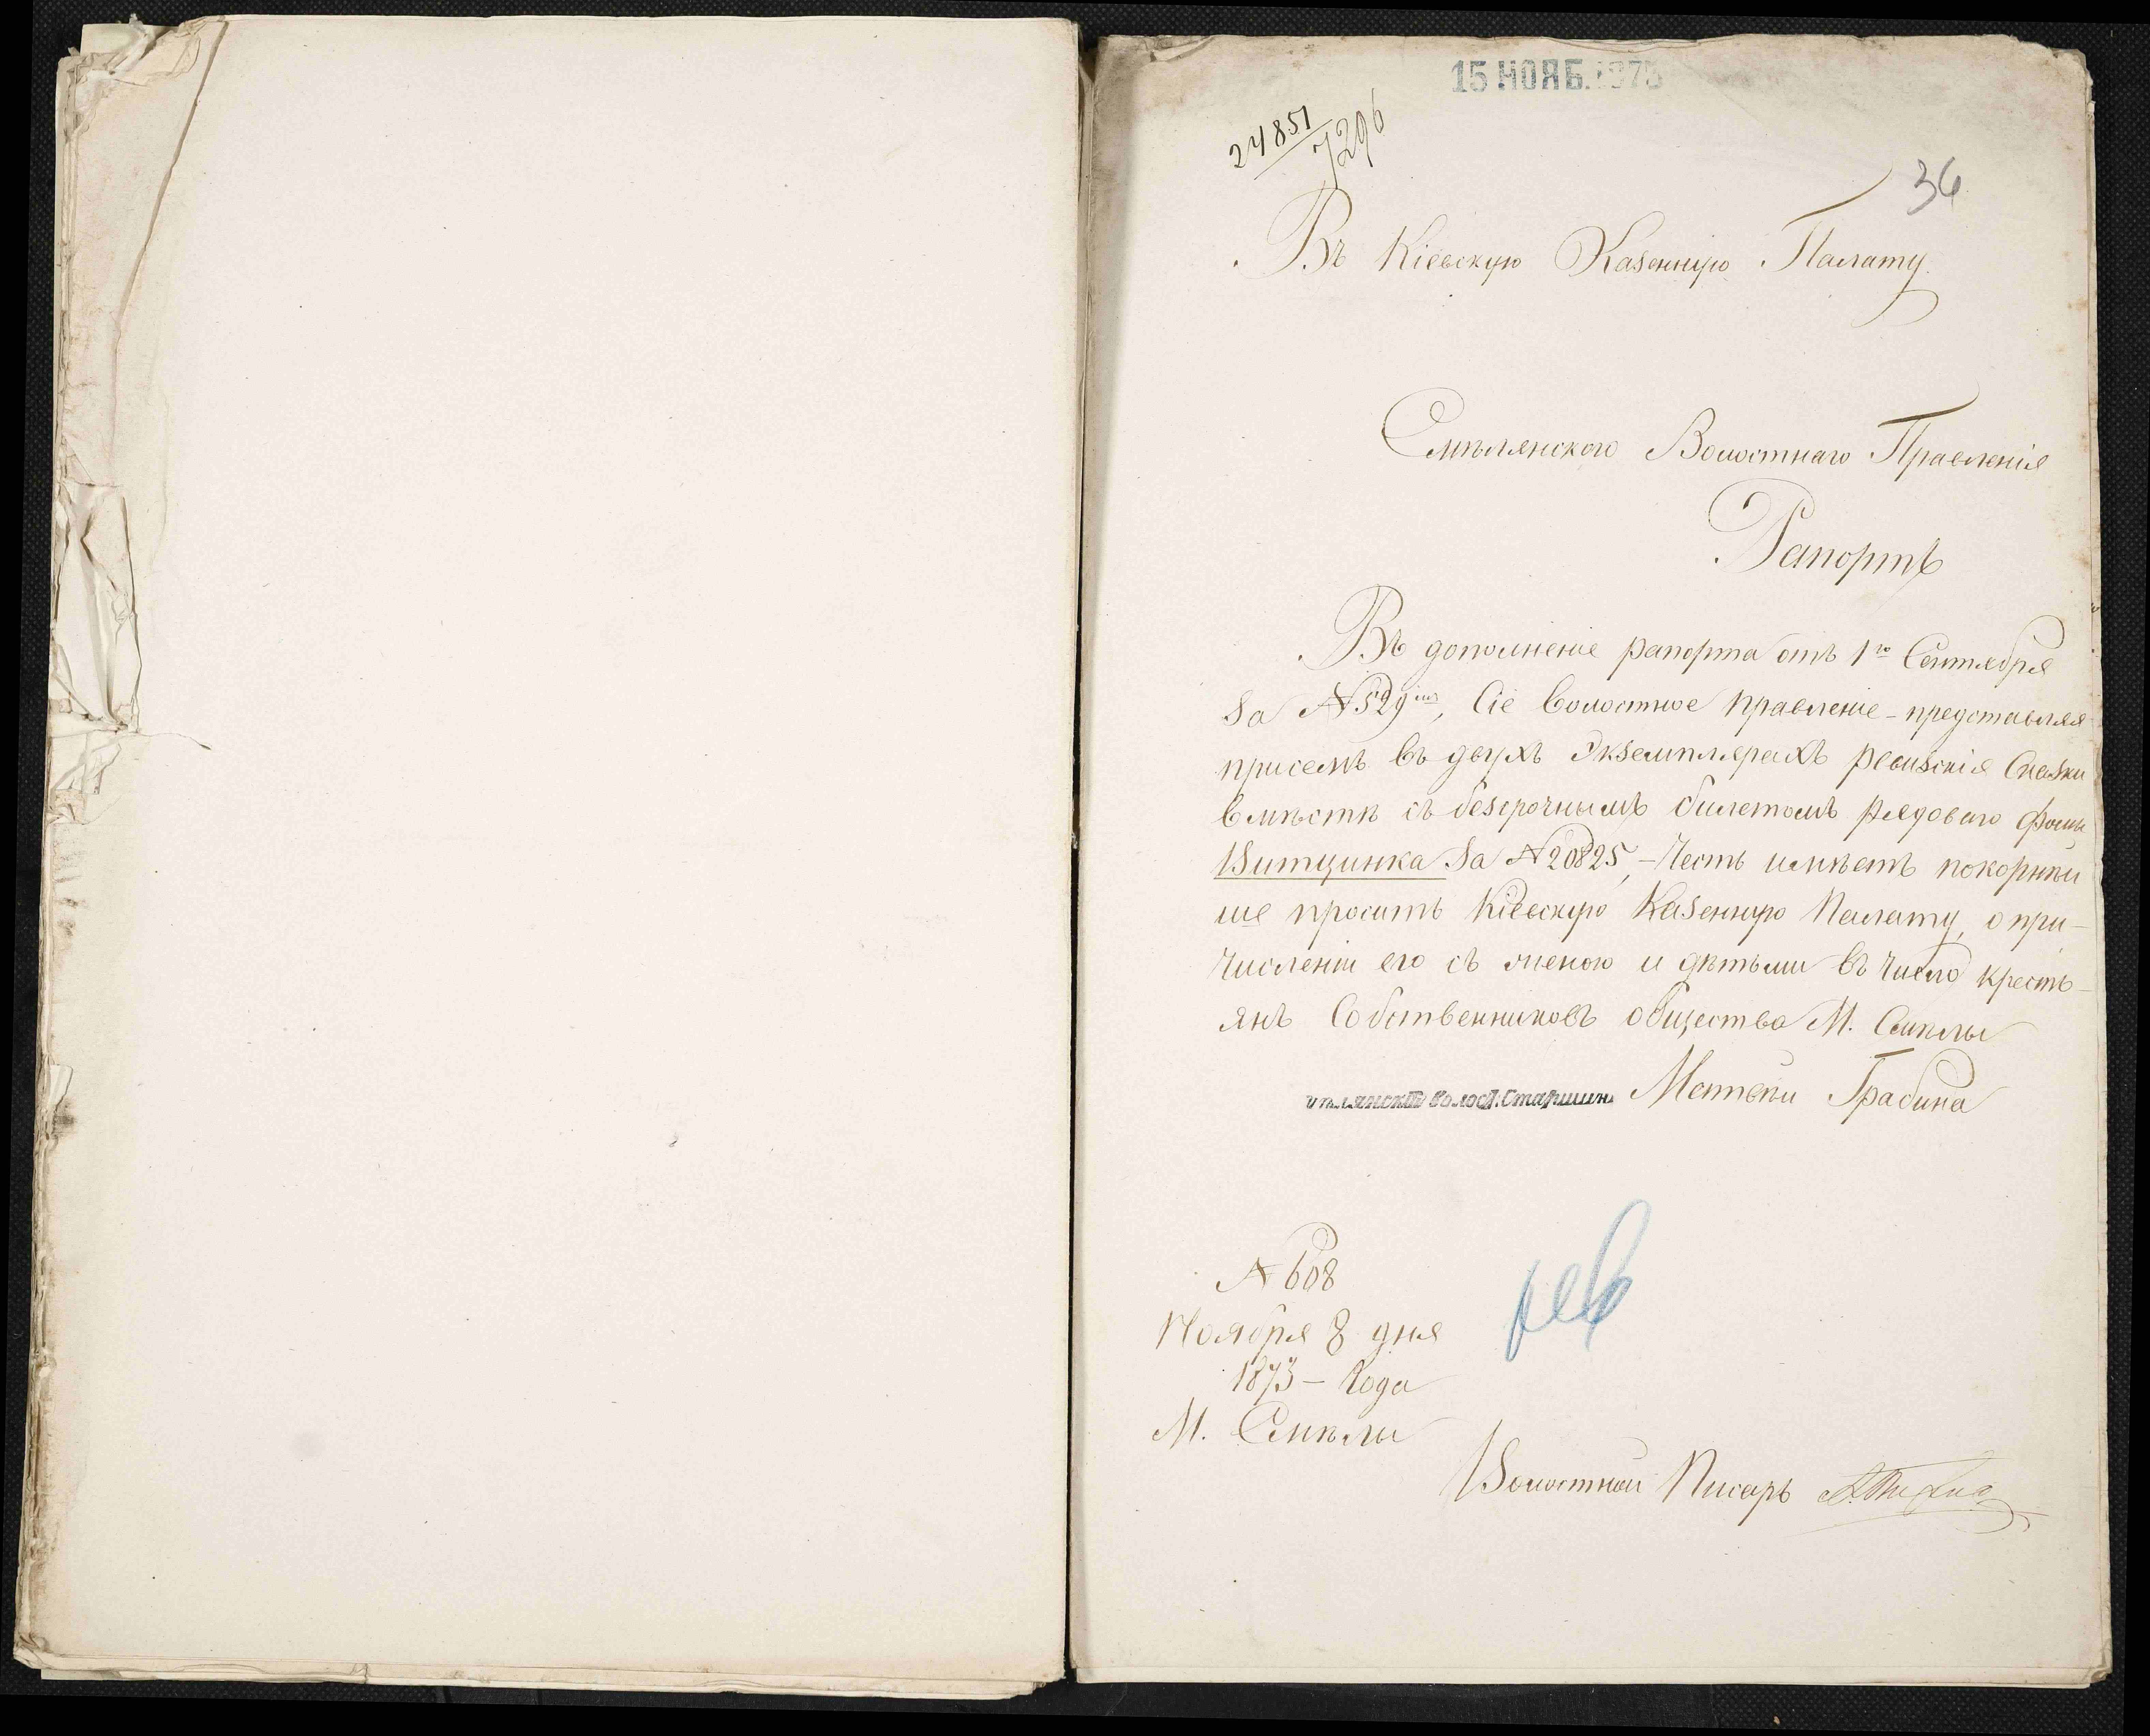 15 НОЯБ. 1873
24851
7296
36
Въ Кіевскую Казенную Палату.
Смѣлянского Волостнаго Правленія
Рапортъ
Въ дополненіе рапорта отъ 1го Сентября
за № 529, Сіе волостное правленіе - представляя
присемъ въ двухъ экземплярахъ ревизскія Сказки
вмѣстѣ съ безсрочнымъ билетомъ рядоваго Фомы
Витцинка за № 20825, - Честь имѣетъ покорнѣй
ше просить Кіевскую Казенную Палату, о при-
численіи его съ женою и дѣтьми въ число кресть-
янъ Собственниковъ общества М. Смѣлы
мѣлянскій Волост. Старшина Матвѣй Грабина
№ 608
Ноября 8 дня
1873 - Года
М. Смѣлы
рев
Волостной Писарь